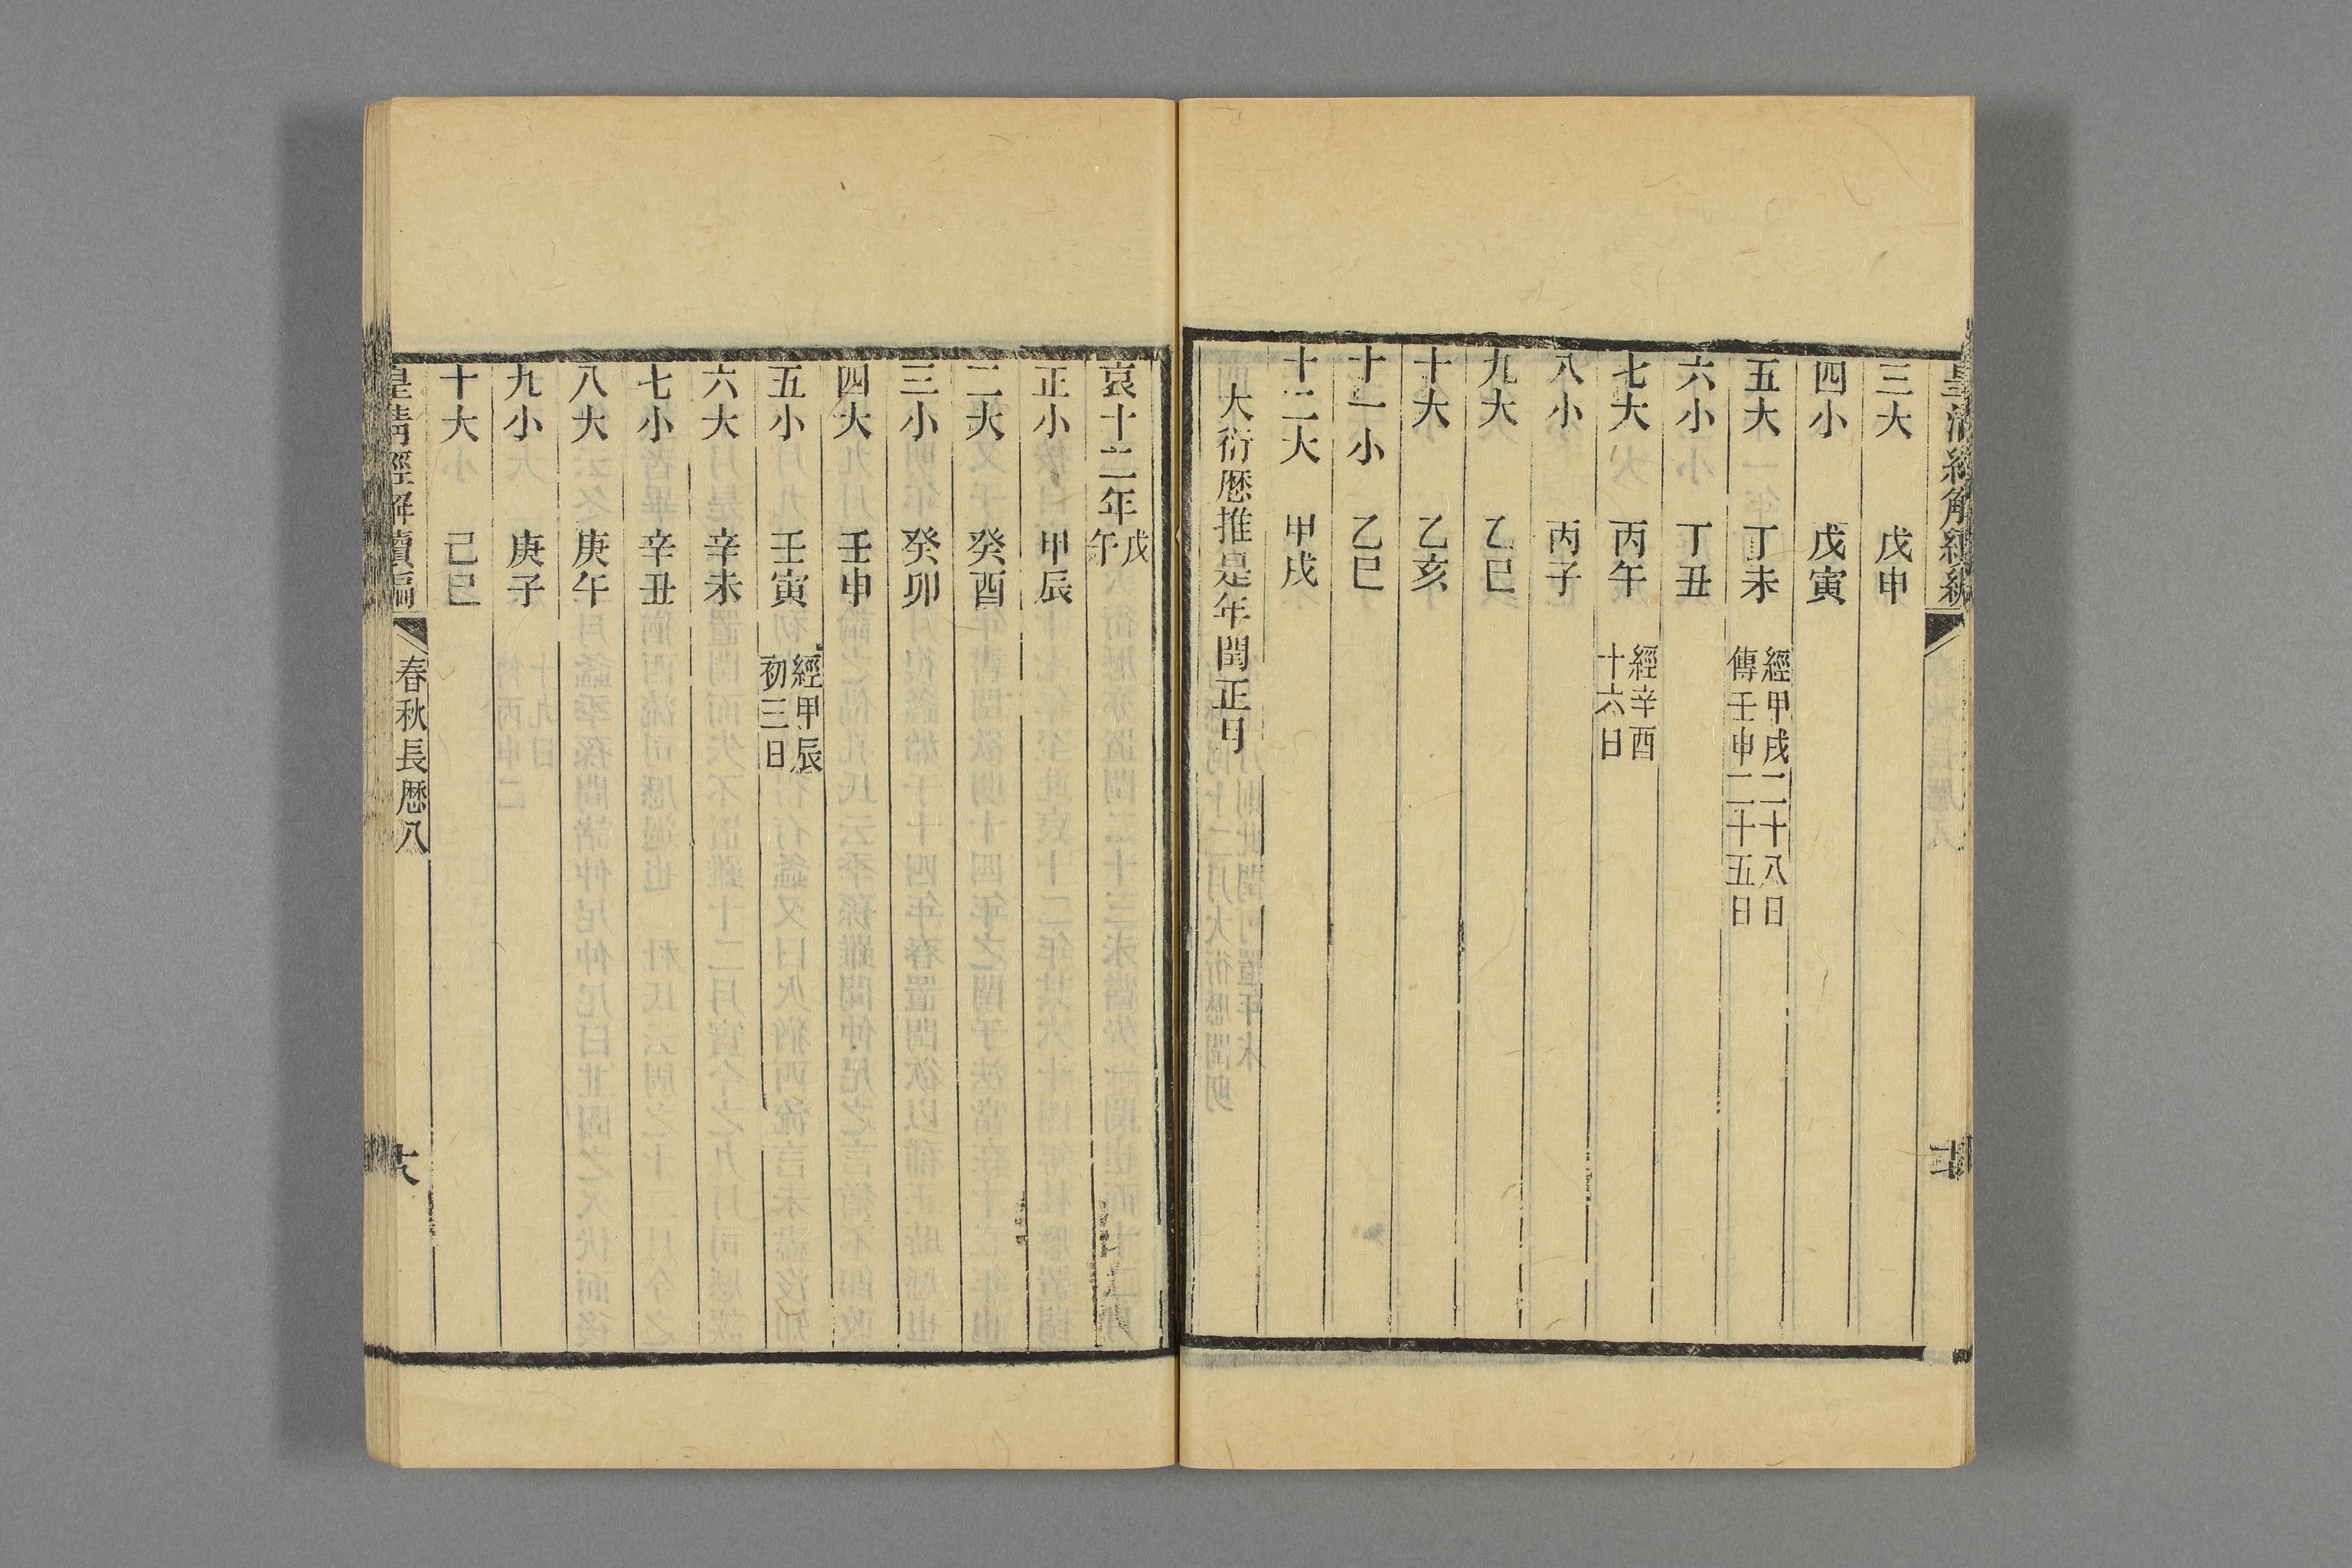 皇清經解續編
三大　戊申
四小　戊寅
五大　丁未　經甲戌二十八日
傳壬申二十五日
六小　丁丑
七大　丙午　經辛酉
十六日
八小　丙子
九大　乙巳
十大　乙亥
十一小　乙巳
十二大　甲戌
大衍厯推是年閏正月
哀十二年戊
午
正小　甲辰
二大　癸酉
三小　癸卯
四大　壬申
五小　壬寅　經甲辰
初三日
六大　辛未
七小　辛丑
八大　庚午
九小　庚子
十大　己巳
皇清經解續編
春秋長厯八